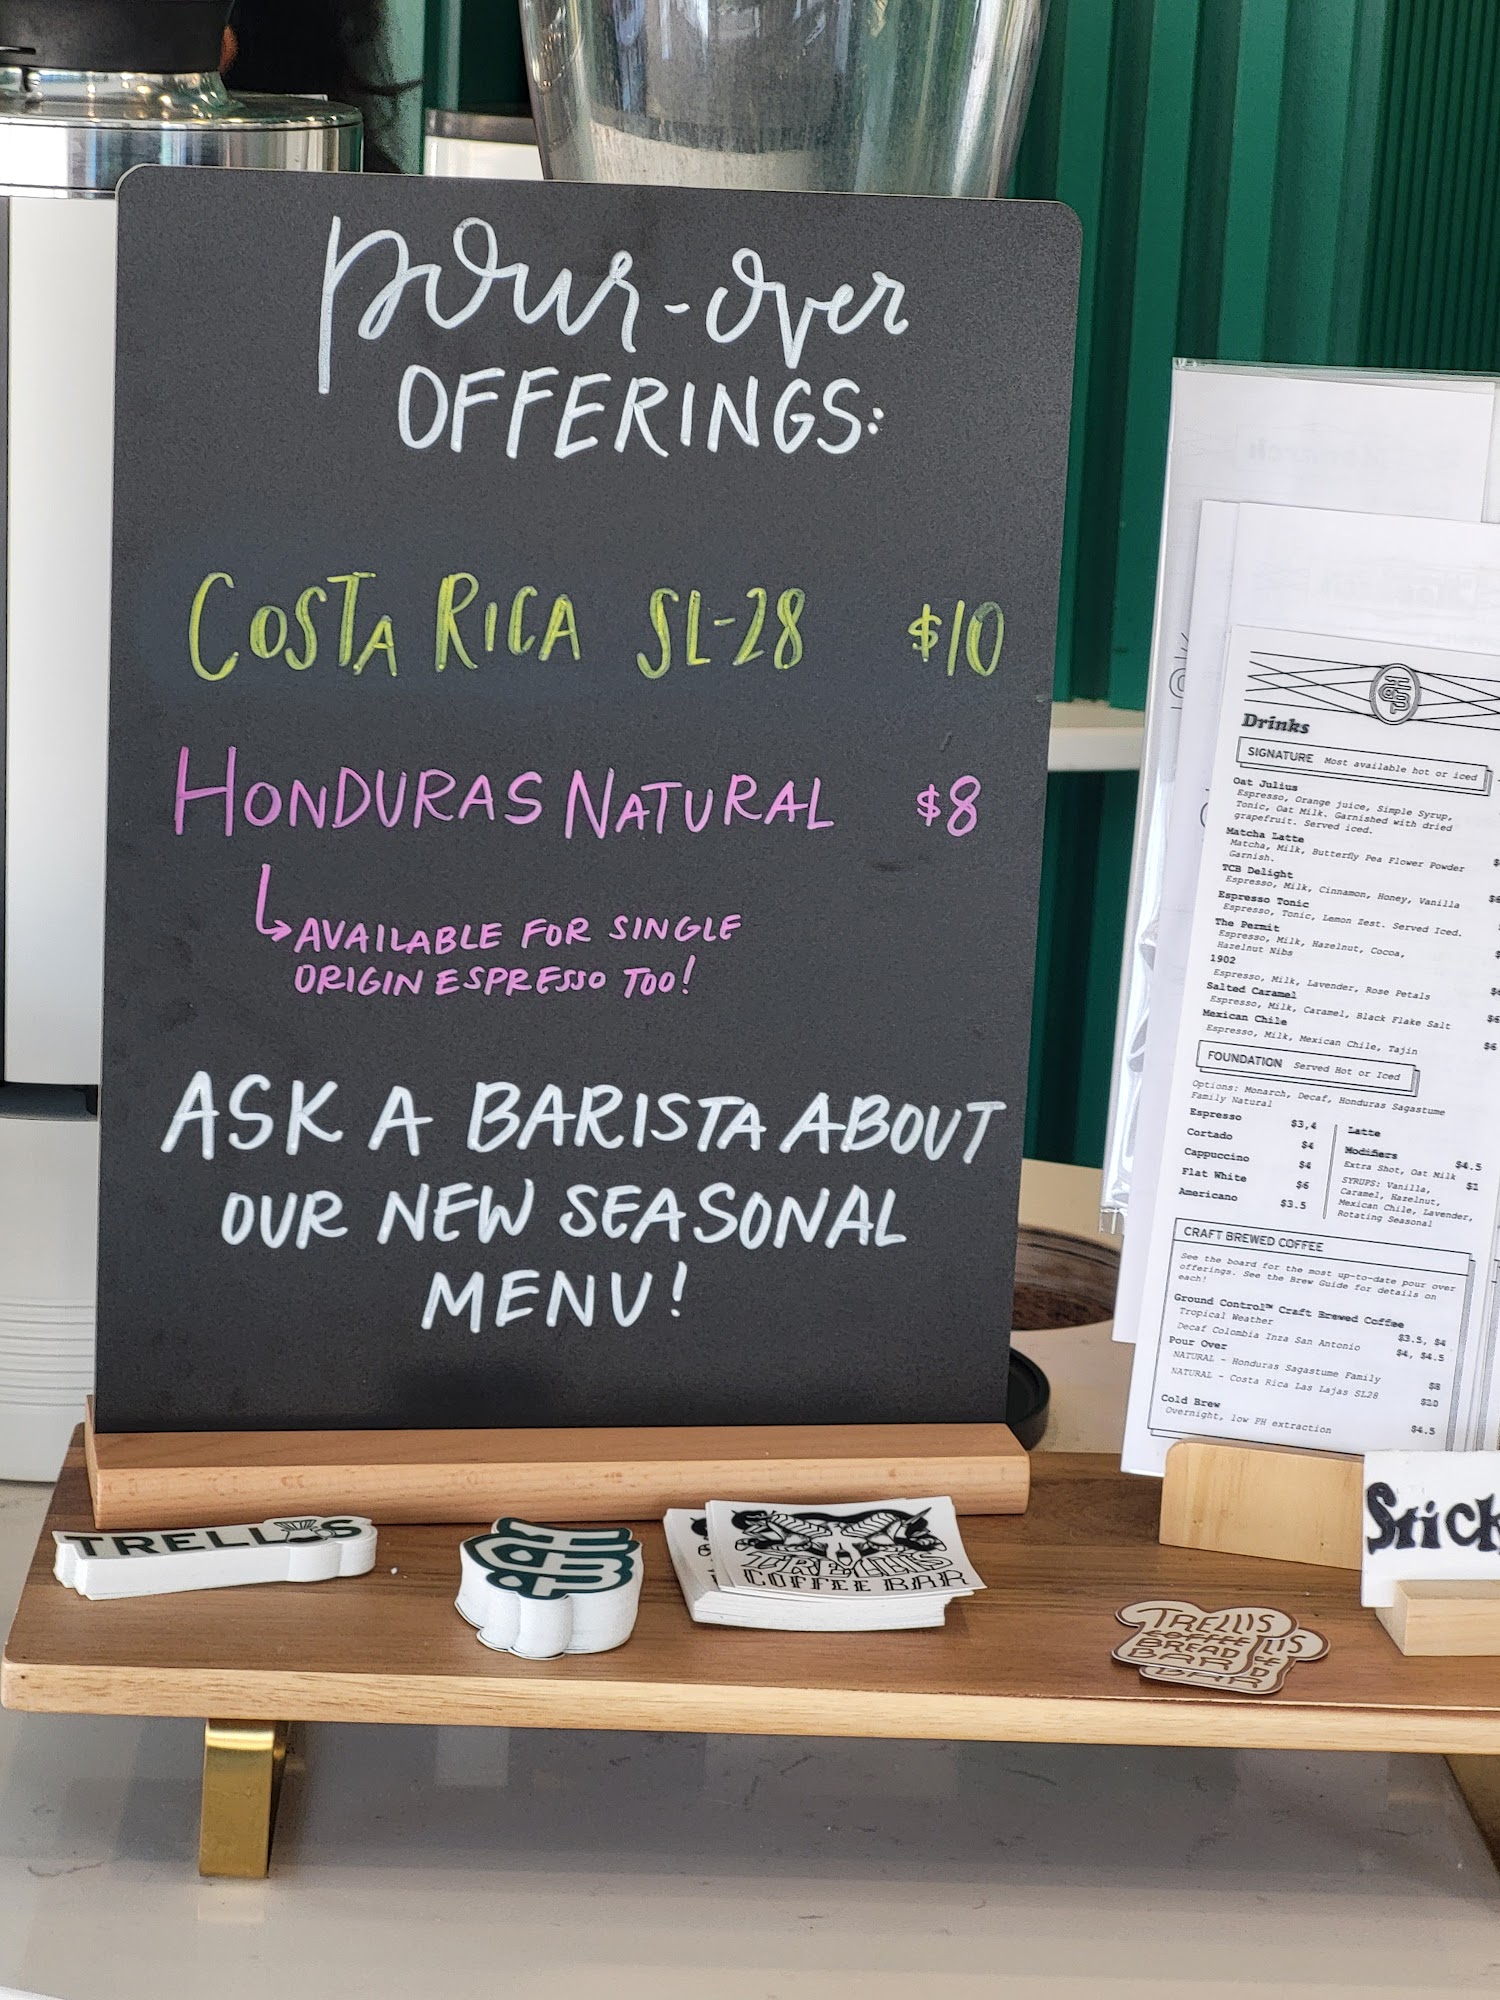 pour-over
OFFERINGS:
COSTA RICA SL-28 $10
HONDURAS NATURAL $8
AVAILABLE FOR SINGLE
ORIGIN ESPRESSO TOO!
ASK A BARISTA ABOUT
OUR NEW SEASONAL
MENU!
Drinks
SIGNATURE Most available hot or iced
Oat Julius
Espresso, Orange juice, Simple Syrup,
Tonic, Oat Milk. Garnished with dried
grapefruit. Served iced.
Matcha Latte
Matcha, Milk, Butterfly Pea Flower Powder
Garnish.
TCB Delight
Espresso, Milk, Cinnamon, Honey, Vanilla
Espresso Tonic
Espresso, Tonic, Lemon Zest. Served Iced.
The Permit
Espresso, Milk, Hazelnut, Cocoa,
Hazelnut Nibs
1902
Espresso, Milk, Lavender, Rose Petals
Salted Caramel
Espresso, Milk, Caramel, Black Flake Salt
Mexican Chile
Espresso, Milk, Mexican Chile, Tajin $6
FOUNDATION Served Hot or Iced
Options: Monarch, Decaf, Honduras Sagastume
Family Natural
Espresso $3,4
Cortado $4
Cappuccino $4
Flat White $6
Americano $3.5
Latte $4.5
Modifiers
Extra Shot, Oat Milk $1
SYRUPS: Vanilla,
Caramel, Hazelnut,
Mexican Chile, Lavender,
Rotating Seasonal
CRAFT BREWED COFFEE
See the board for the most up-to-date pour over
offerings. See the Brew Guide for details on
each!
Ground Control™ Craft Brewed Coffee
Tropical Weather $3.5, $4
Decaf Colombia Inza San Antonio $4, $4.5
Pour Over
NATURAL - Honduras Sagastume Family $8
NATURAL - Costa Rica Las Lajas SL28 $10
Cold Brew
Overnight, low PH extraction $4.5
TRELLIS
TCB
TRELLIS
COFFEE BAR
TRELLIS
COFFEE
BREAD
BAR
Stick